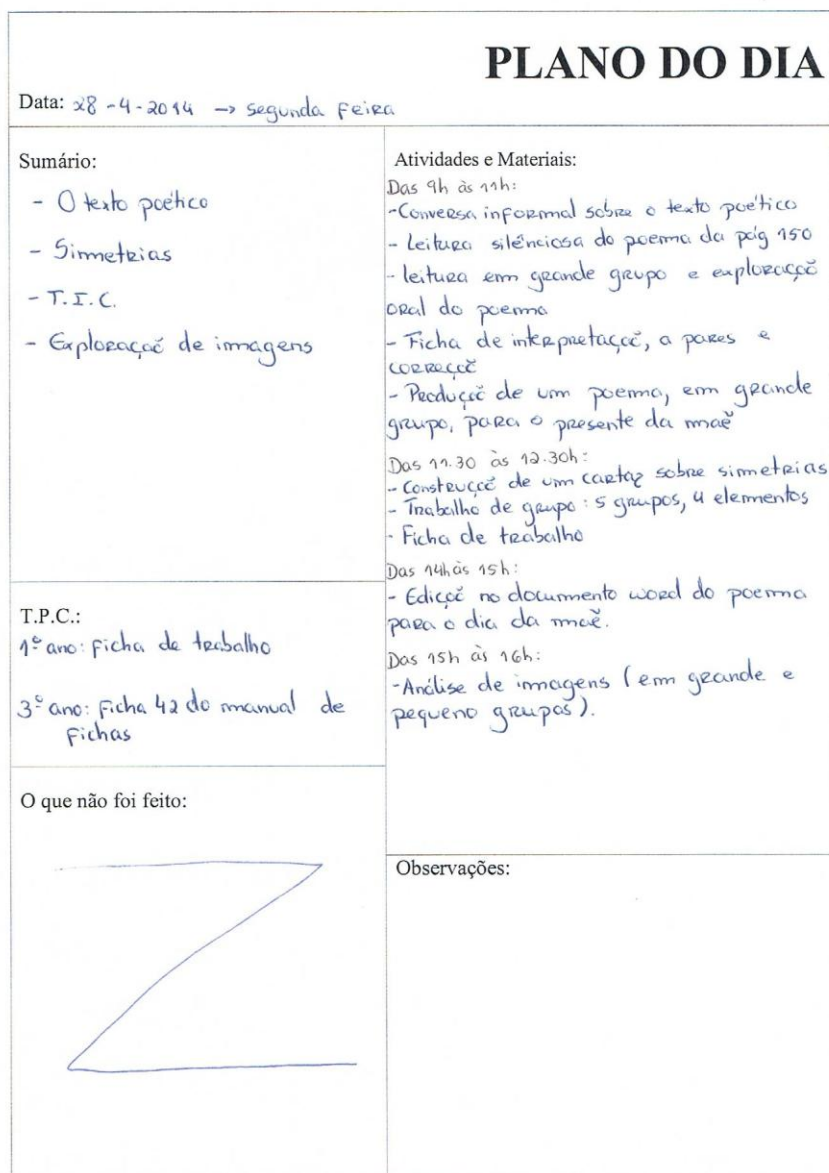 PLANO DO DIA
Data: 28-4-2014 → segunda feira
Sumário:
- O texto poético
- Simetrias
- T.I.C.
- Exploração de imagens
T.P.C.:
1º ano: ficha de trabalho
3º ano: ficha 42 do manual de
fichas
O que não foi feito:
Atividades e Materiais:
Das 9h às 11h:
-Conversa informal sobre o texto poético
- Leitura silênciosa do poema da pág 150
- leitura em grande grupo e exploração
oral do poema
- Ficha de interpretação, a pares e
correção
- Produção de um poema, em grande
grupo, para o presente da mãe
Das 11.30 às 12.30h:
- Construção de um cartaz sobre simetrias
- Trabalho de grupo: 5 grupos, 4 elementos
- Ficha de trabalho
Das 14h às 15h:
- Edição no documento word do poema
para o dia da mãe.
Das 15h às 16h:
-Análise de imagens (em grande e
pequeno grupos).
Observações: